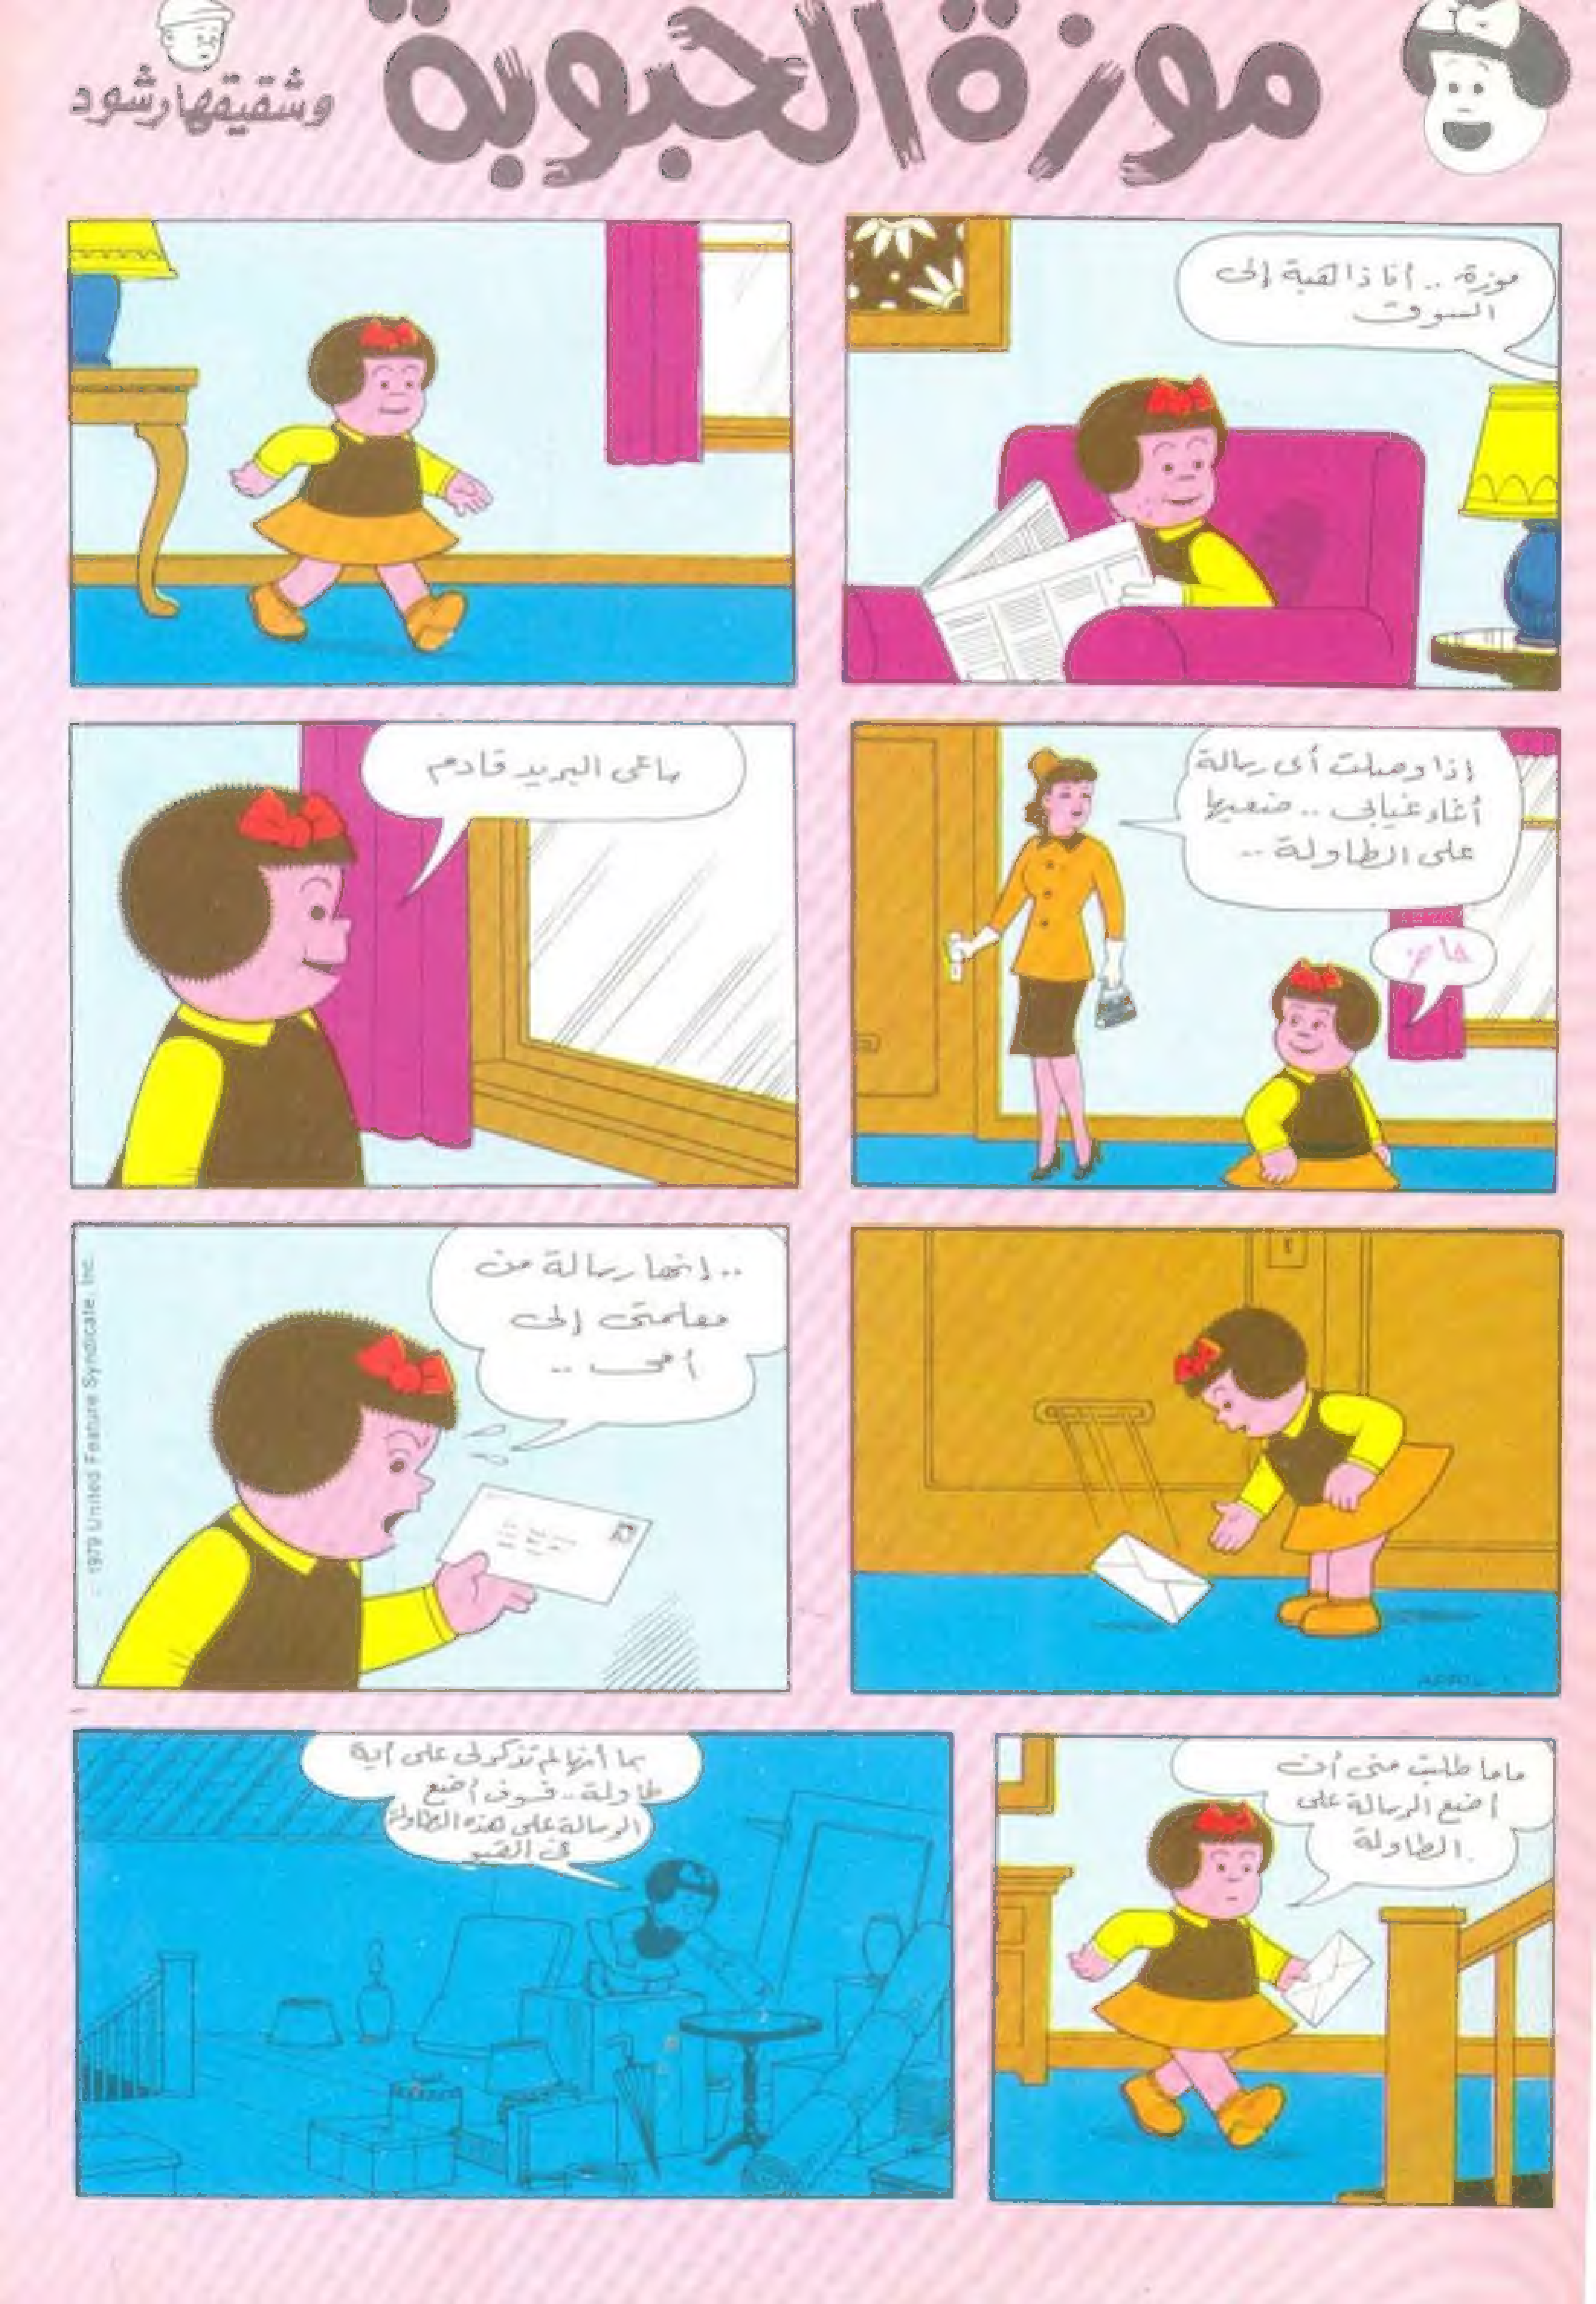 موزة الحبوبة
وشقيقها رشود
موزة .. أنا ذاهبة إلى
السوق
إذا وصلت أى رسالة
أثناء غيابى .. ضعيها
على الطاولة ..
حاضر
ساعى البريد قادم
APRIL
.. إنها رسالة من
معلمتى إلى
أمى ..
1979 United Feature Syndicate, Inc.
ماما طلبت منى أن
أضع الرسالة على
الطاولة.
بما أنها لم تذكر لى على أية
طاولة .. فسوف أضع
الرسالة على هذه الطاولة
فى القبو